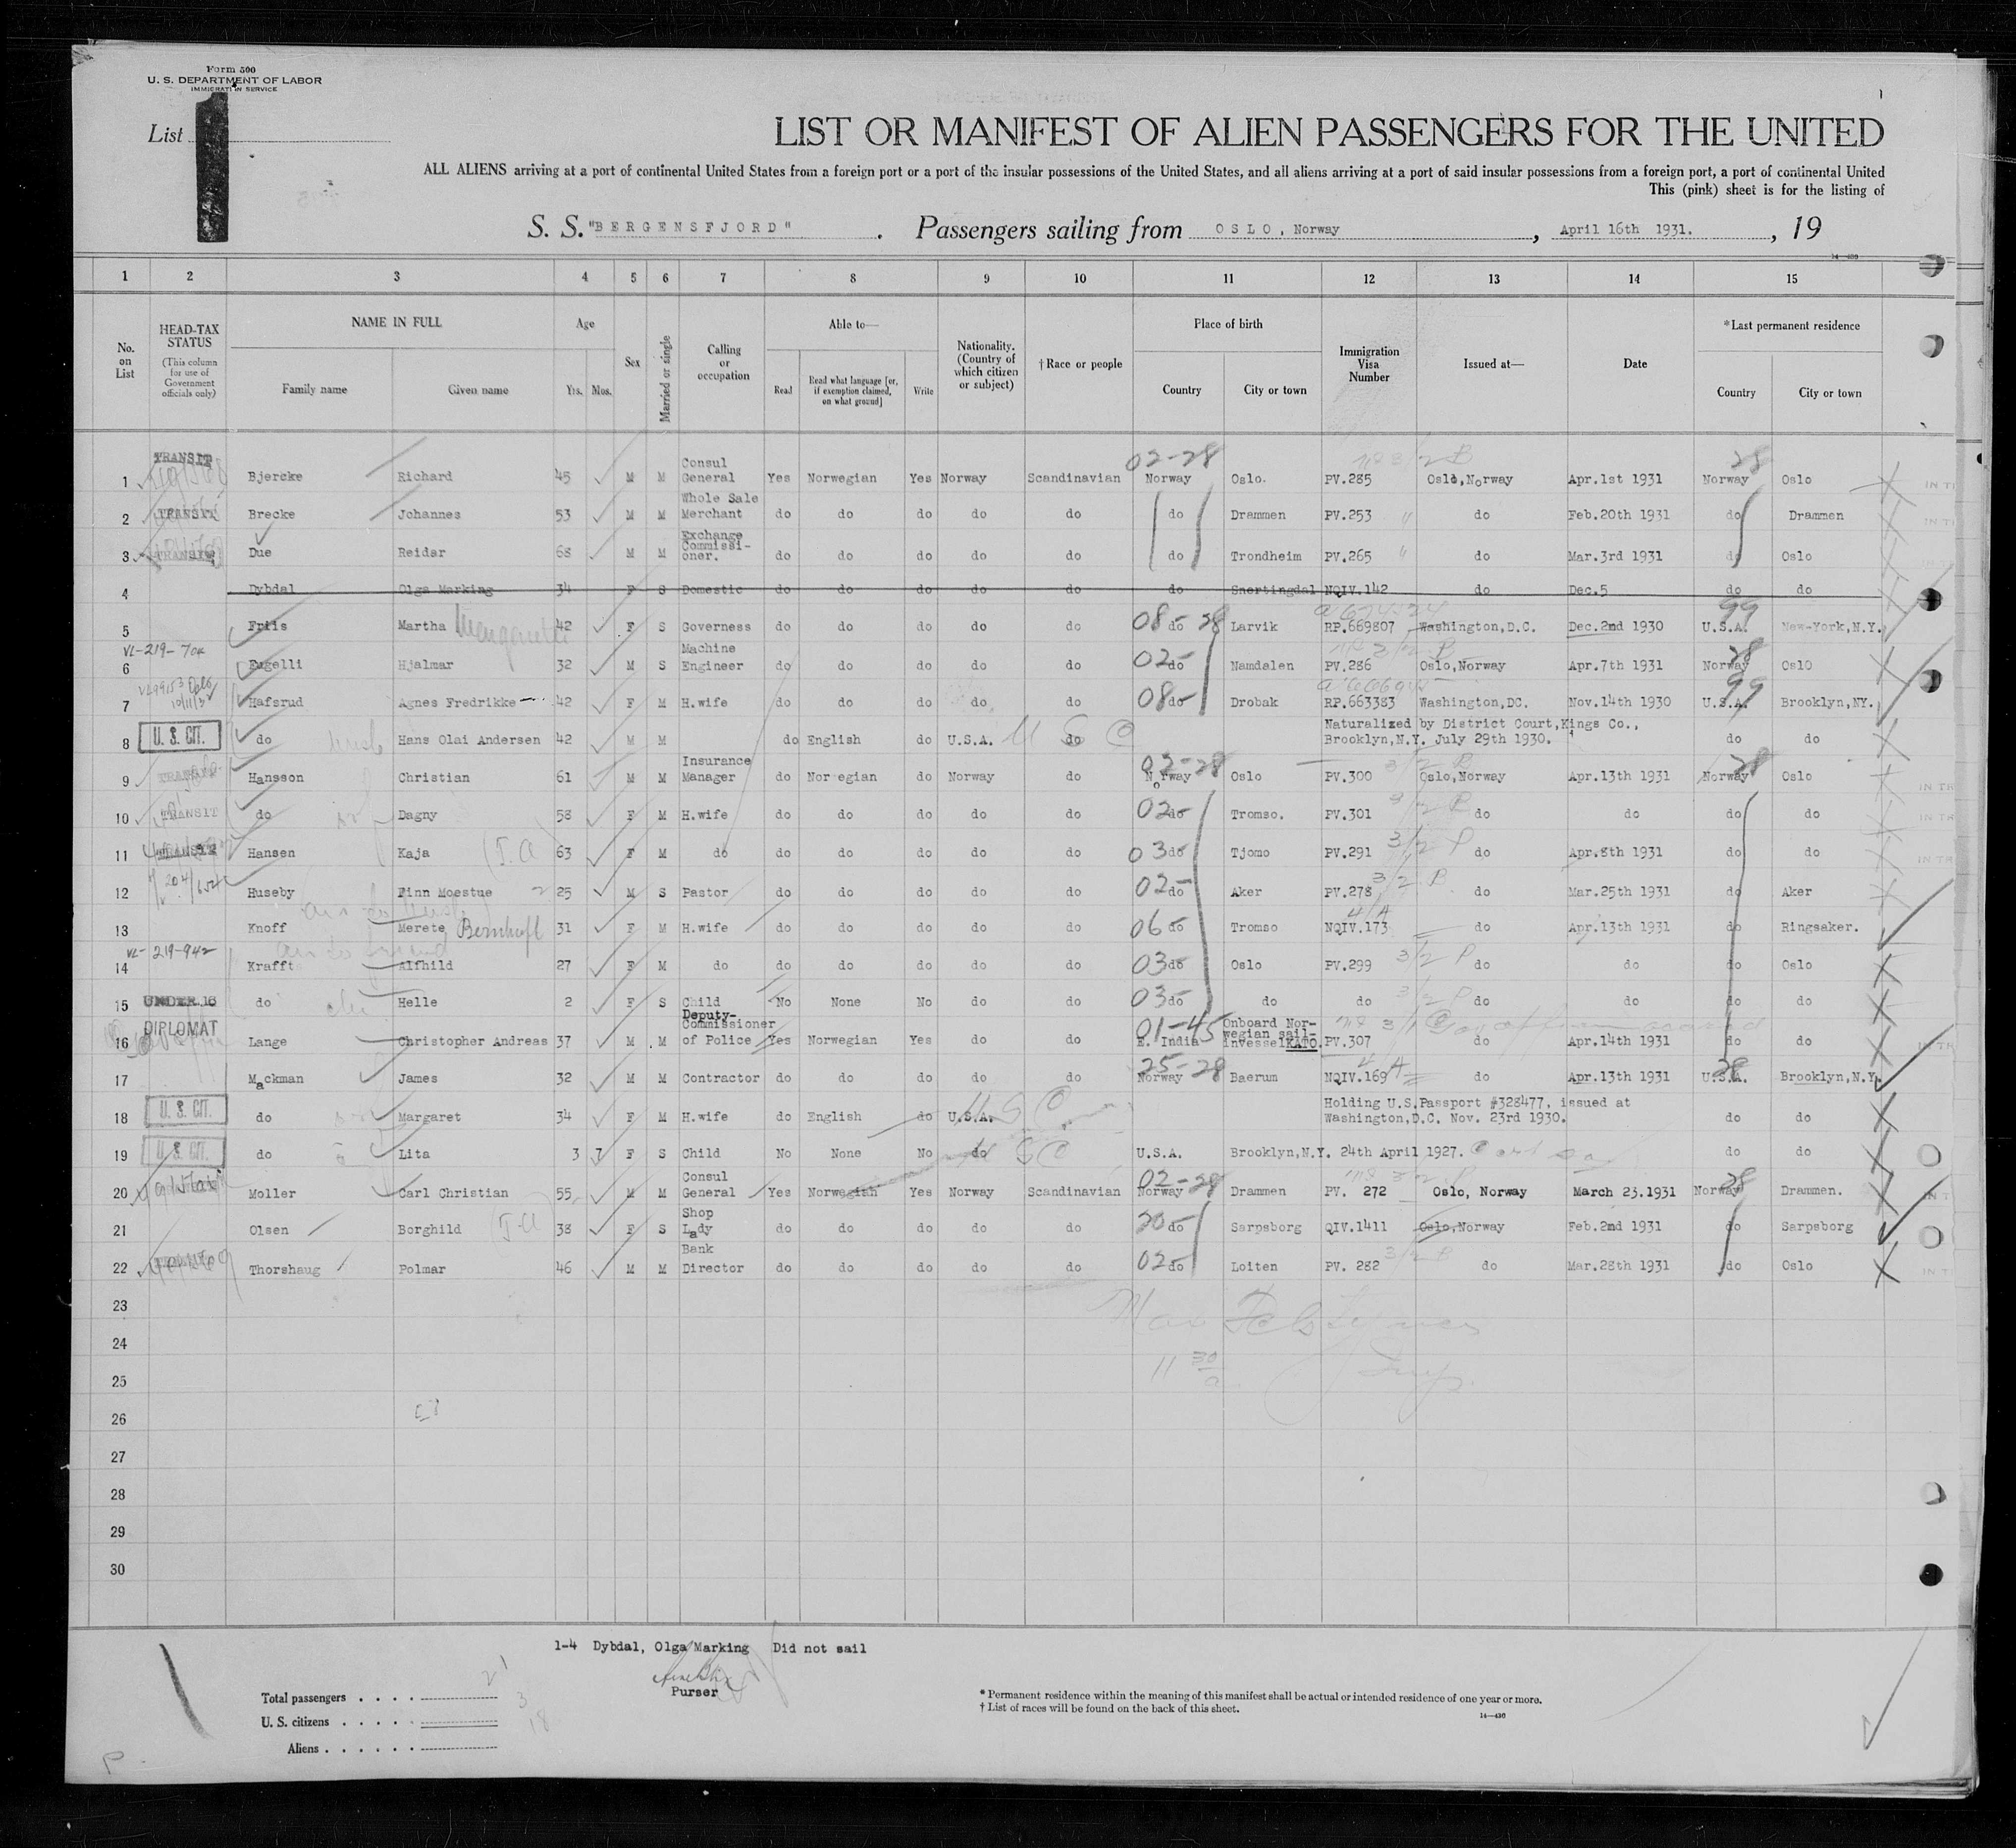 Form 500
U. S. DEPARTMENT OF LABOR
IMMIGRATION SERVICE
List
LIST OR MANIFEST OF ALIEN PASSENGERS FOR THE UNITED
ALL ALIENS arriving at a port of continental United States from a foreign port or a port of the insular possessions of the United States, and all aliens arriving at a port of said insular possessions from a foreign port, a port of continental United
This (pink) sheet is for the listing of
S. S. "BERGENSFJORD" . Passengers sailing from OSLO, Norway , April 16th 1931. , 19
14—430
1 2 3 4 5 6 7 8 9 10 11 12 13 14 15
No. on List HEAD-TAX STATUS (This column for use of Government officials only) NAME IN FULL Family name Given name Age Yrs. Mos. Sex Married or single Calling or occupation Able to— Read Read what language [or, if exemption claimed, on what ground] Write Nationality. (Country of which citizen or subject) † Race or people Place of birth Country City or town Immigration Visa Number Issued at— Date * Last permanent residence Country City or town
1 TRANSIT Bjercke Richard 45 M M Consul General Yes Norwegian Yes Norway Scandinavian 02-28 Norway Oslo. PV.285 Oslo, Norway Apr.1st 1931 28 Norway Oslo
2 TRANSIT Brecke Johannes 53 M M Whole Sale Merchant do do do do do do Drammen PV.253 " do Feb.20th 1931 do Drammen
3 TRANSIT Due Reidar 68 M M Exchange Commissi-oner. do do do do do do Trondheim PV.265 " do Mar.3rd 1931 do Oslo
4 Dybdal Olga Marking 34 F S Domestic do do do do do do Snertingdal NQIV.142 do Dec.5 do do
5 Friis Martha 42 F S Governess do do do do do 08- 28 do Larvik RP.669807 Washington,D.C. Dec.2nd 1930 99 U.S.A. New-York,N.Y.
VL-219-704
6 Fugelli Hjalmar 32 M S Machine Engineer do do do do do 02- do Namdalen PV.286 Oslo,Norway Apr.7th 1931 28 Norway Oslo
7 Hafsrud Agnes Fredrikke 42 F M H.wife do do do do do 08- do Drobak RP.663383 Washington,DC. Nov.14th 1930 99 U.S.A. Brooklyn,NY.
8 U. S. CIT. do Hans Olai Andersen 42 M M do English do U.S.A. U S C do Naturalized by District Court,Kings Co., Brooklyn,N.Y. July 29th 1930. do do
9 TRANSIT Hansson Christian 61 M M Insurance Manager do Nor egian do Norway do 02-28 Norway Oslo PV.300 3/2 B Oslo,Norway Apr.13th 1931 28 Norway Oslo
10 TRANSIT do Dagny 58 F M H.wife do do do do do 02- do Tromso. PV.301 3/2 B do do do do
11 TRANSIT Hansen Kaja (T.A) 63 F M do do do do do do 03 do Tjomo PV.291 3/2 P do Apr.8th 1931 do do
12 Huseby Finn Moestue 25 M S Pastor do do do do do 02- do Aker PV.278 3/2 B do Mar.25th 1931 do Aker
13 Knoff Merete 31 F M H.wife do do do do do 06- do Tromso NQIV.173 4/A do Apr.13th 1931 do Ringsaker.
VL-219-942
14 Krafft Alfhild 27 F M do do do do do do 03- do Oslo PV.299 3/2 P do do do Oslo
15 UNDER 16 do Helle 2 F S Child No None No do do 03- do do do 3/2 P do do do do
16 DIPLOMAT Lange Christopher Andreas 37 M M Deputy-Commissioner of Police Yes Norwegian Yes do do 01-45 E. India Onboard Nor-wegian sail-invessel KATO. PV.307 do Apr.14th 1931 do do
17 Mackman James 32 M M Contractor do do do do do 25-28 Norway Baerum NQIV.169 4 A do Apr.13th 1931 28 U.S.A. Brooklyn,N.Y.
18 U. S. CIT. do Margaret 34 F M H.wife do English do U.S.A. U S C Holding U.S.Passport #328477, issued at Washington,D.C. Nov. 23rd 1930. do do
19 U. S. CIT. do Lita 3 7 F S Child No None No do U S C U.S.A. Brooklyn,N.Y. 24th April 1927. do do
20 Moller Carl Christian 55 M M Consul General Yes Norwegian Yes Norway Scandinavian 02-28 Norway Drammen PV. 272 Oslo, Norway March 23.1931 28 Norway Drammen.
21 Olsen Borghild (T-A) 38 F S Shop Lady do do do do do 20- do Sarpsborg QIV.1411 Oslo,Norway Feb.2nd 1931 do Sarpsborg
22 TRANSIT Thorshaug Polmar 46 M M Bank Director do do do do do 02- do Loiten PV. 282 3/2 B do Mar.28th 1931 do Oslo
23
24
25 11 30
26
27
28
29
30
1-4 Dybdal, Olga Marking Did not sail
Purser
Total passengers . . . . 21
U. S. citizens . . . . . 3
Aliens . . . . . . 18
* Permanent residence within the meaning of this manifest shall be actual or intended residence of one year or more.
† List of races will be found on the back of this sheet.
14—430